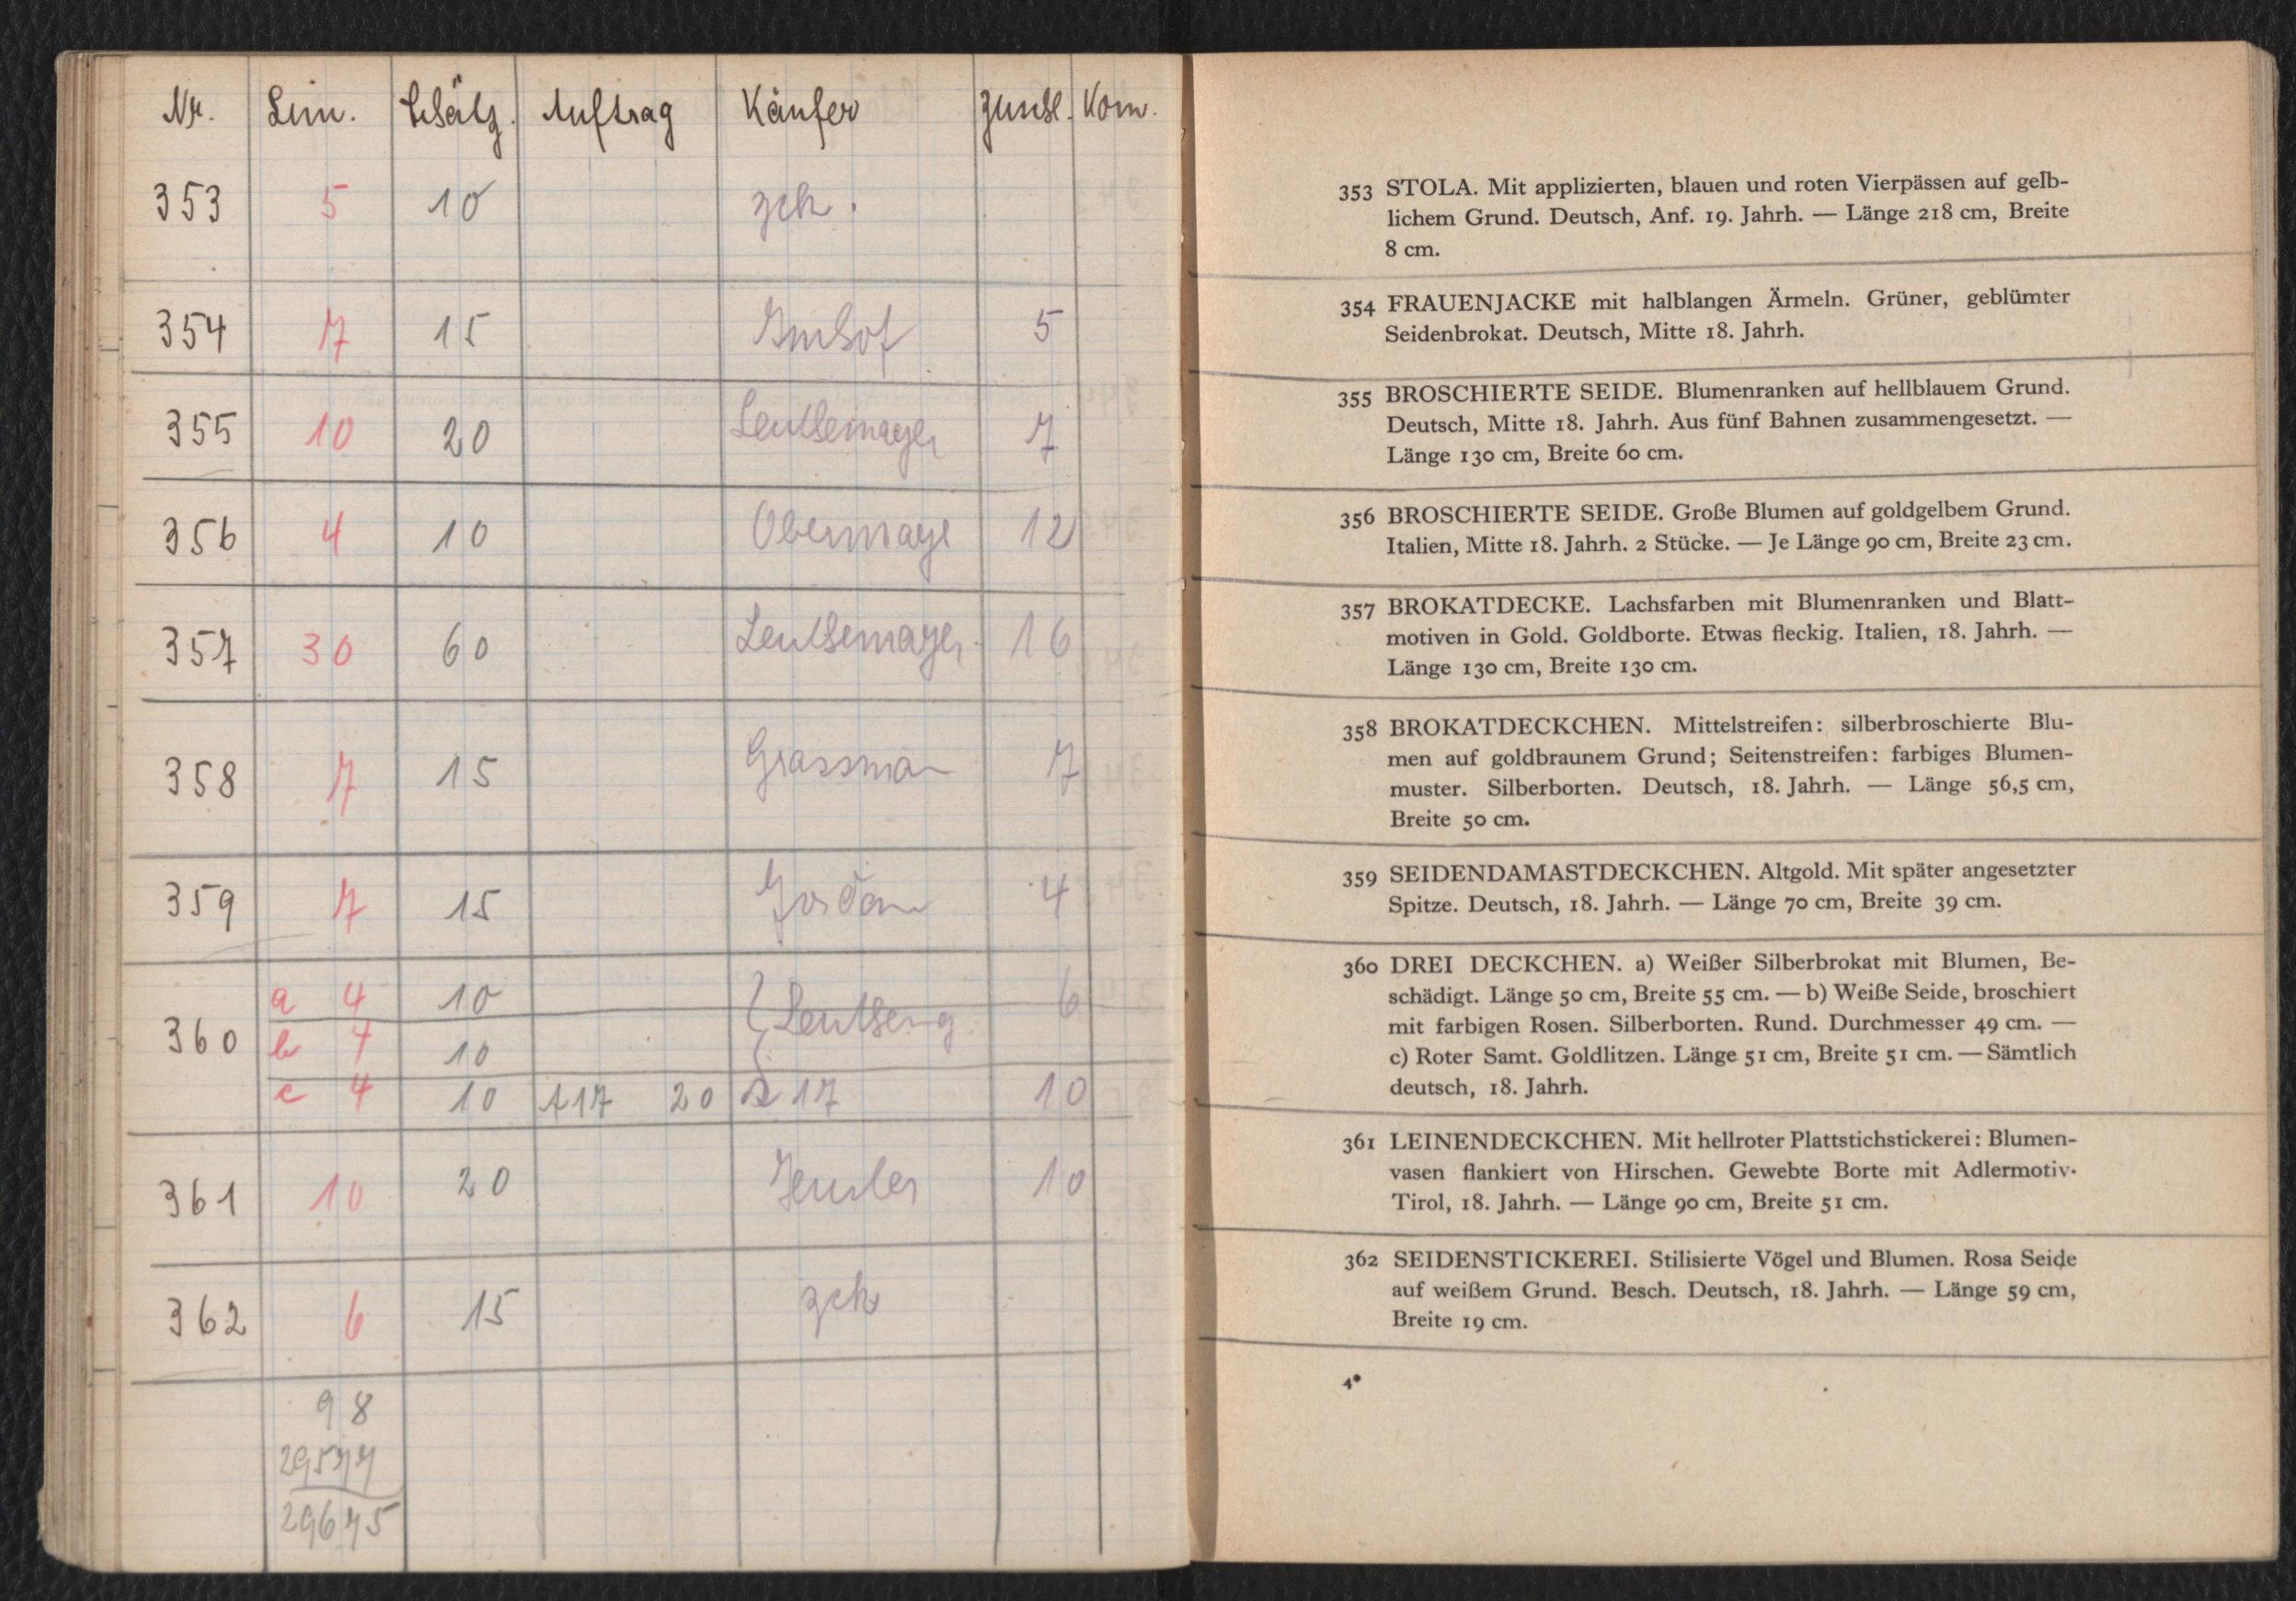 Nr. Lim. Schätz. Auftrag Käufer Zuschl. Kom.
353 5 10 zck.
354 7 15 Imhof 5
355 10 20 7
356 4 10 Obermaye 12
357 30 60 16
358 7 15 Grassman 7
359 7 15 Jordan 4
360
a 4 10 6
b 4 10
c 4 10 A 17 20 17 10
361 10 20 10
362 6 15 zck
98
29577
29675
353 STOLA. Mit applizierten, blauen und roten Vierpässen auf gelb-
lichem Grund. Deutsch, Anf. 19. Jahrh. — Länge 218 cm, Breite
8 cm.
354 FRAUENJACKE mit halblangen Ärmeln. Grüner, geblümter
Seidenbrokat. Deutsch, Mitte 18. Jahrh.
355 BROSCHIERTE SEIDE. Blumenranken auf hellblauem Grund.
Deutsch, Mitte 18. Jahrh. Aus fünf Bahnen zusammengesetzt. —
Länge 130 cm, Breite 60 cm.
356 BROSCHIERTE SEIDE. Große Blumen auf goldgelbem Grund.
Italien, Mitte 18. Jahrh. 2 Stücke. — Je Länge 90 cm, Breite 23 cm.
357 BROKATDECKE. Lachsfarben mit Blumenranken und Blatt-
motiven in Gold. Goldborte. Etwas fleckig. Italien, 18. Jahrh. —
Länge 130 cm, Breite 130 cm.
358 BROKATDECKCHEN. Mittelstreifen: silberbroschierte Blu-
men auf goldbraunem Grund; Seitenstreifen: farbiges Blumen-
muster. Silberborten. Deutsch, 18. Jahrh. — Länge 56,5 cm,
Breite 50 cm.
359 SEIDENDAMASTDECKCHEN. Altgold. Mit später angesetzter
Spitze. Deutsch, 18. Jahrh. — Länge 70 cm, Breite 39 cm.
360 DREI DECKCHEN. a) Weißer Silberbrokat mit Blumen, Be-
schädigt. Länge 50 cm, Breite 55 cm. — b) Weiße Seide, broschiert
mit farbigen Rosen. Silberborten. Rund. Durchmesser 49 cm. —
c) Roter Samt. Goldlitzen. Länge 51 cm, Breite 51 cm. — Sämtlich
deutsch, 18. Jahrh.
361 LEINENDECKCHEN. Mit hellroter Plattstichstickerei: Blumen-
vasen flankiert von Hirschen. Gewebte Borte mit Adlermotiv.
Tirol, 18. Jahrh. — Länge 90 cm, Breite 51 cm.
362 SEIDENSTICKEREI. Stilisierte Vögel und Blumen. Rosa Seide
auf weißem Grund. Besch. Deutsch, 18. Jahrh. — Länge 59 cm,
Breite 19 cm.
4*